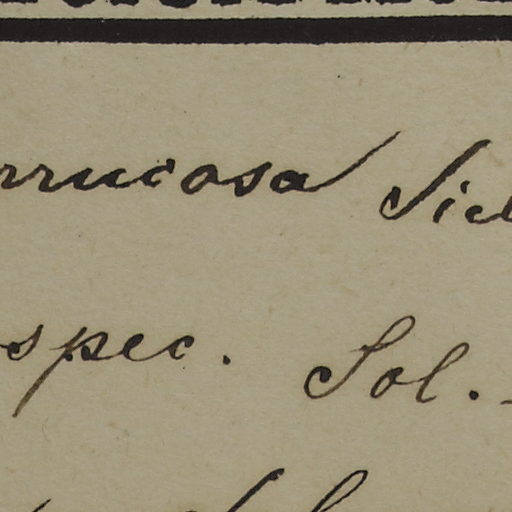 rrucosa Sie
spec. Sol.-